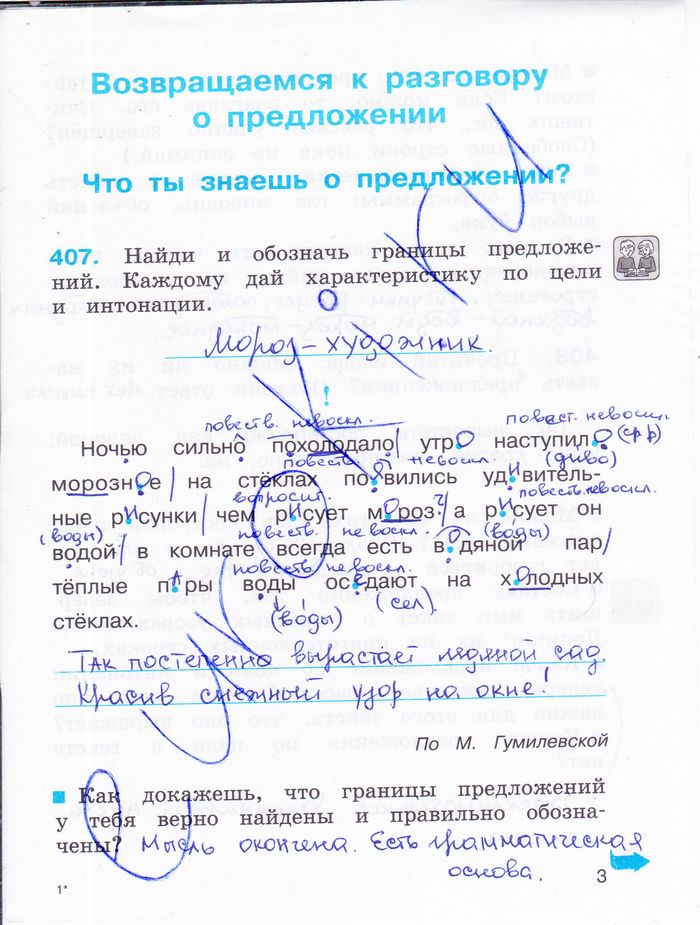 Возвращаемся к разговору
о предложении
Что ты знаешь о предложении?
407. Найди и обозначь границы предложе-
ний. Каждому дай характеристику по цели
и интонации.
Мороз – художник.
!
повеств. невоскл. повест. невоскл.
Ночью сильно похолодало| утрО наступилО (ср.р)
повеств. невоскл. (диво)
морознОе | на стёклах поЯвились удИвитель-
вопросит. повеств. невоскл.
ные рИсунки| чем рИсует мОроз?| а рИсует он
(воды) повеств. невоскл. (воды)
водой| в комнате всегда есть вОдяной пар|
повеств. невоскл.
тёплые пАры воды осЕдают на хОлодных
стёклах. (воды) (сел)
Так постепенно вырастает ледяной сад.
Красив снежный узор на окне!
По М. Гумилевской
Как докажешь, что границы предложений
у тебя верно найдены и правильно обозна-
чены? Мысль окончена. Есть грамматическая
основа.
1*
3